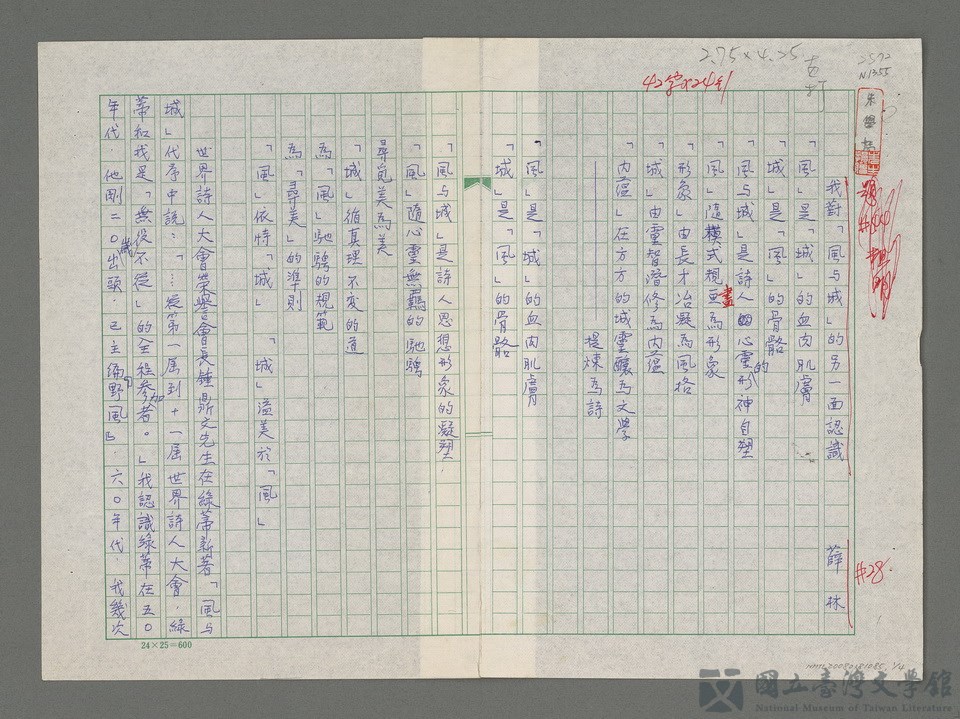 2.75×4.25
42字×24行
2572
N.1355
朱學恕
#28.
我對「風与城」的另一面認識　薛林
「風」是「城」的血肉肌膚
「城」是「風」的骨骼
「風与城」是詩人心靈的形神自塑
「風」隨模式規畫為形象
「形象」由長才冶凝為風格
「城」由靈智潛修為內蘊
「內蘊」在方方的城靈釀為文學
——提煉為詩
「風」是「城」的血肉肌膚
「城」是「風」的骨骼
「風与城」是詩人思想形象的凝塑.
「風」隨心靈無羈的馳騁
尋覓為美
「城」循真理不変的道
為「風」馳騁的規範
為「尋美」的準則
「風」依恃「城」　「城」溢美於「風」
世界詩人大會榮譽會長鍾鼎文先生在綠蒂新著「風与
城」代序中說：「…從第一屆到十一屆世界詩人大會.綠
蒂和我是「無役不從」的全程參加者。」我認識綠蒂在五〇
年代.他剛二〇歲出頭.已主編「野風」.六〇年代.我幾次
24×25=600
NMTL20080181085, 1/4
國立臺灣文學館
National Museum of Taiwan Literature